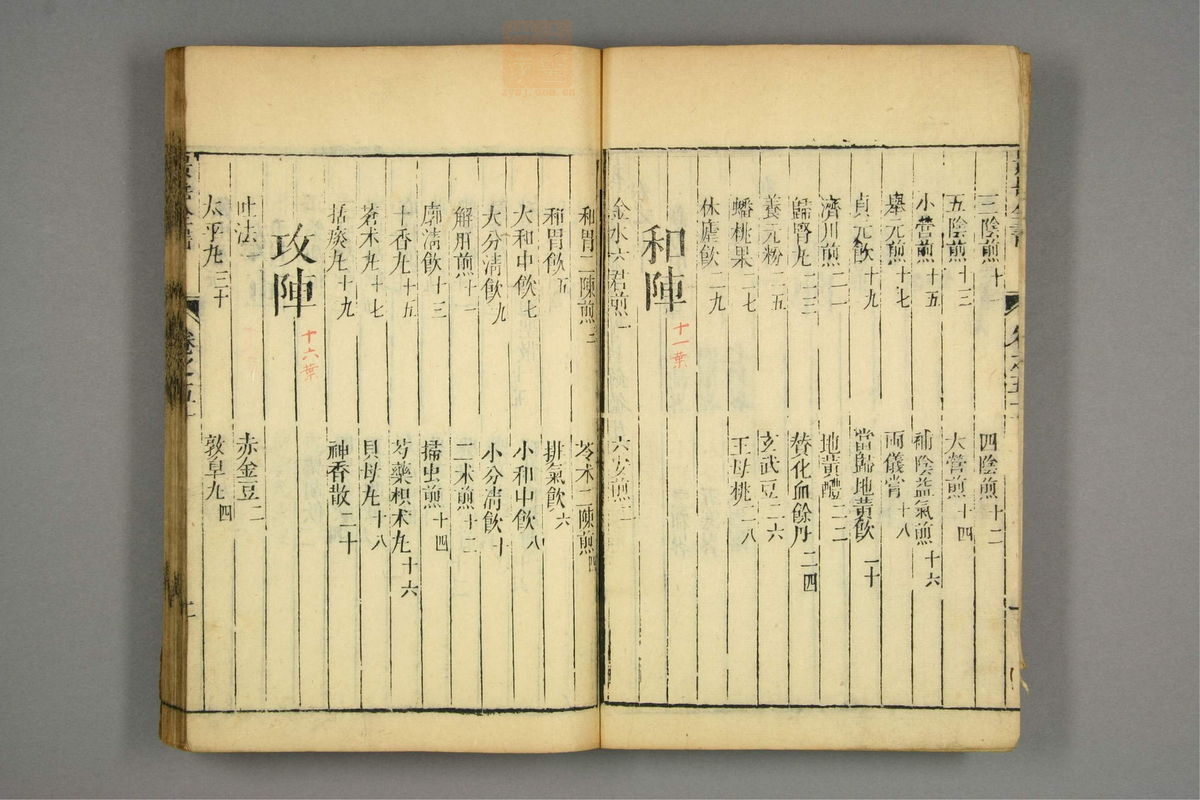 三陰煎十一 四陰煎十二
五陰煎十三 大營煎十四
小營煎十五 補陰益氣煎十六
舉元煎十七 兩儀膏十八
貞元飲十九 當歸地黃飲二十
濟川煎二一 地黃醴二二
歸腎丸二三 贊化血餘丹二四
養元粉二五 玄武豆二六
蟠桃果二七 王母桃二八
休瘧飲二九
和陣
十一葉
金水六君煎一 六安煎二
和胃二陳煎三 苓术二陳煎四
和胃飲五 排氣飲六
大和中飲七 小和中飲八
大分清飲九 小分清飲十
解肝煎十一 二术煎十二
廓清飲十三 掃虫煎十四
十香丸十五 芍藥枳术丸十六
蒼术丸十七 貝母丸十八
括痰丸十九 神香散二十
攻陣
十六葉
吐法一 赤金豆二
太平丸三十 敦阜丸四
卷之五十